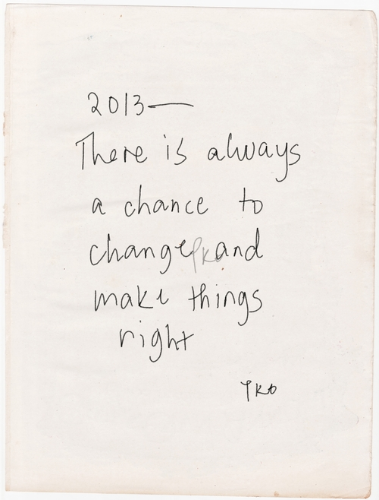 2013—
There is always
a chance to
change and
make things
right
YKO